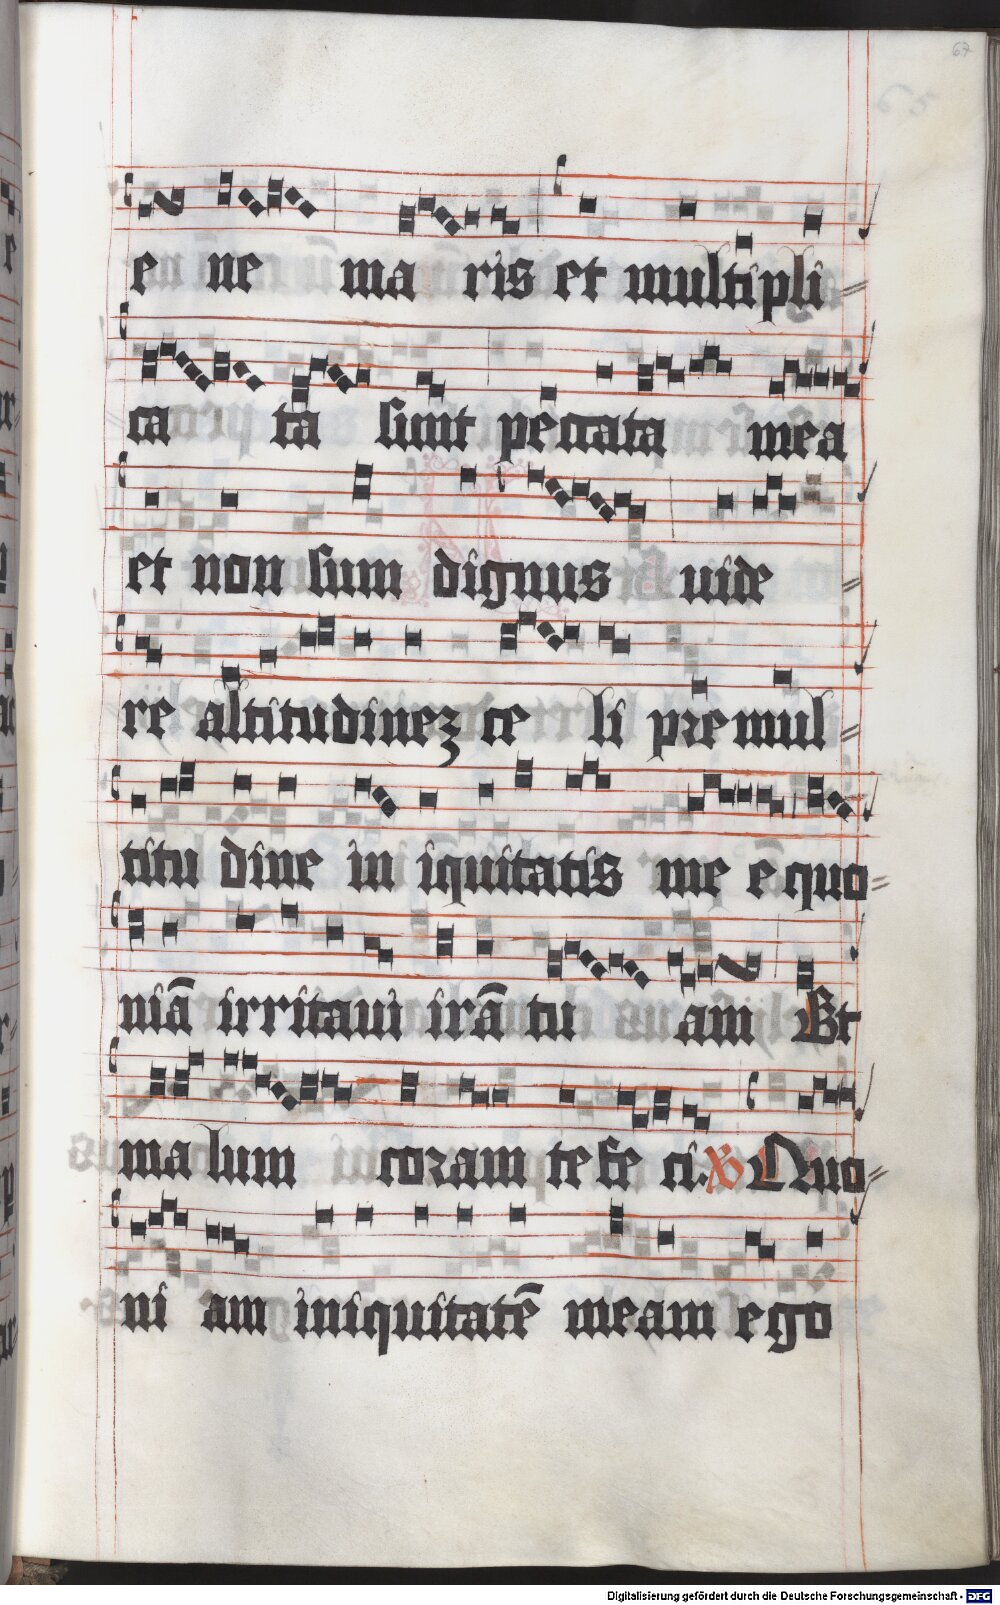 67
e ne ma ris et multipli=
ca ta sunt peccata mea
et non sum dignus uide=
re altitudinez ce li pre mul=
titu dine in iquitatis me e quo=
niā irritaui irā tu am Et
ma lum coram te fe ci. V Quo=
ni am iniquitatē meam ego
Digitalisierung gefördert durch die Deutsche Forschungsgemeinschaft - DFG